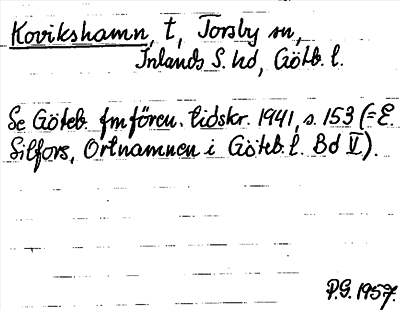 Kovikshamn, t, Torsby sn,
Inlands S. hd, Götb. l.
Se Göteb. fmfören. tidskr. 1941, s. 153 (= E.
Silfors, Ortnamnen i Göteb. l. Bd V).
P.G. 1957.